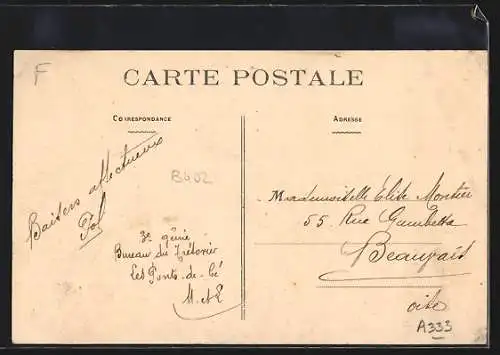 F
CARTE POSTALE
CORRESPONDANCE
ADRESSE
Baisers affectueux
Pol
B402
3e génie
Bureau du Trésorier
Les Ponts-de-Cé
M-et-L
Mademoiselle Elise Montier
55 Rue Gambetta
Beauvais
Oise
A333